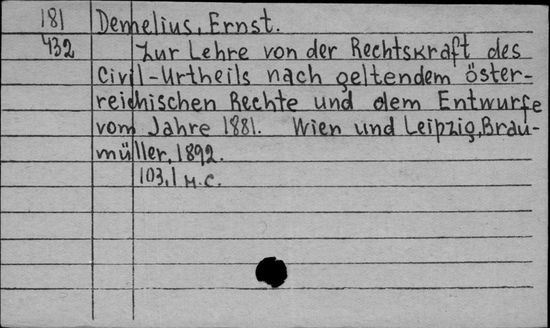 181 Demelius, Ernst.
432 Zur Lehre von der Rechtskraft des
Civil-Urtheils nach geltendem öster-
reichischen Rechte und dem Entwurfe
vom Jahre 1881. Wien und Leipzig, Brau-
müller, 1892.
103,1 м.с.